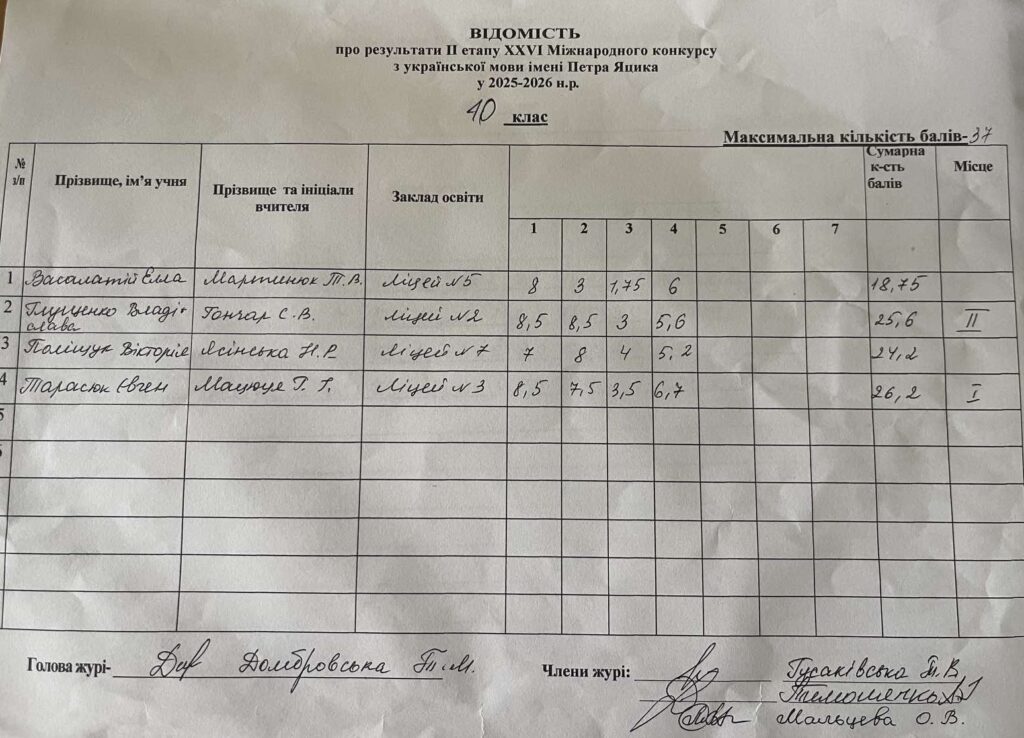 ВІДОМІСТЬ
про результати ІІ етапу XXVI Міжнародного конкурсу
з української мови імені Петра Яцика
у 2025-2026 н.р.
10 клас
Максимальна кількість балів-37
№ з/п Прізвище, ім’я учня Прізвище та ініціали вчителя Заклад освіти 1 2 3 4 5 6 7 Сумарна к-сть балів Місце
1 Василатій Елла Мартинюк Т.В. Ліцей №5 8 3 1,75 6 18,75
2 Глущенко Владіслава Гончар С.В. Ліцей №2 8,5 8,5 3 5,6 25,6 ІІ
3 Поліщук Вікторія Ясінська Н.Р. Ліцей №7 7 8 4 5.2 24,2
4 Тарасюк Євген Ліцей №3 8,5 7,5 3,5 6,7 26,2 І
5
Голова журі- Домбровська Т.М.
Члени журі: Гусаківська Т.В.
Тимошенко
Мальцева О.В.